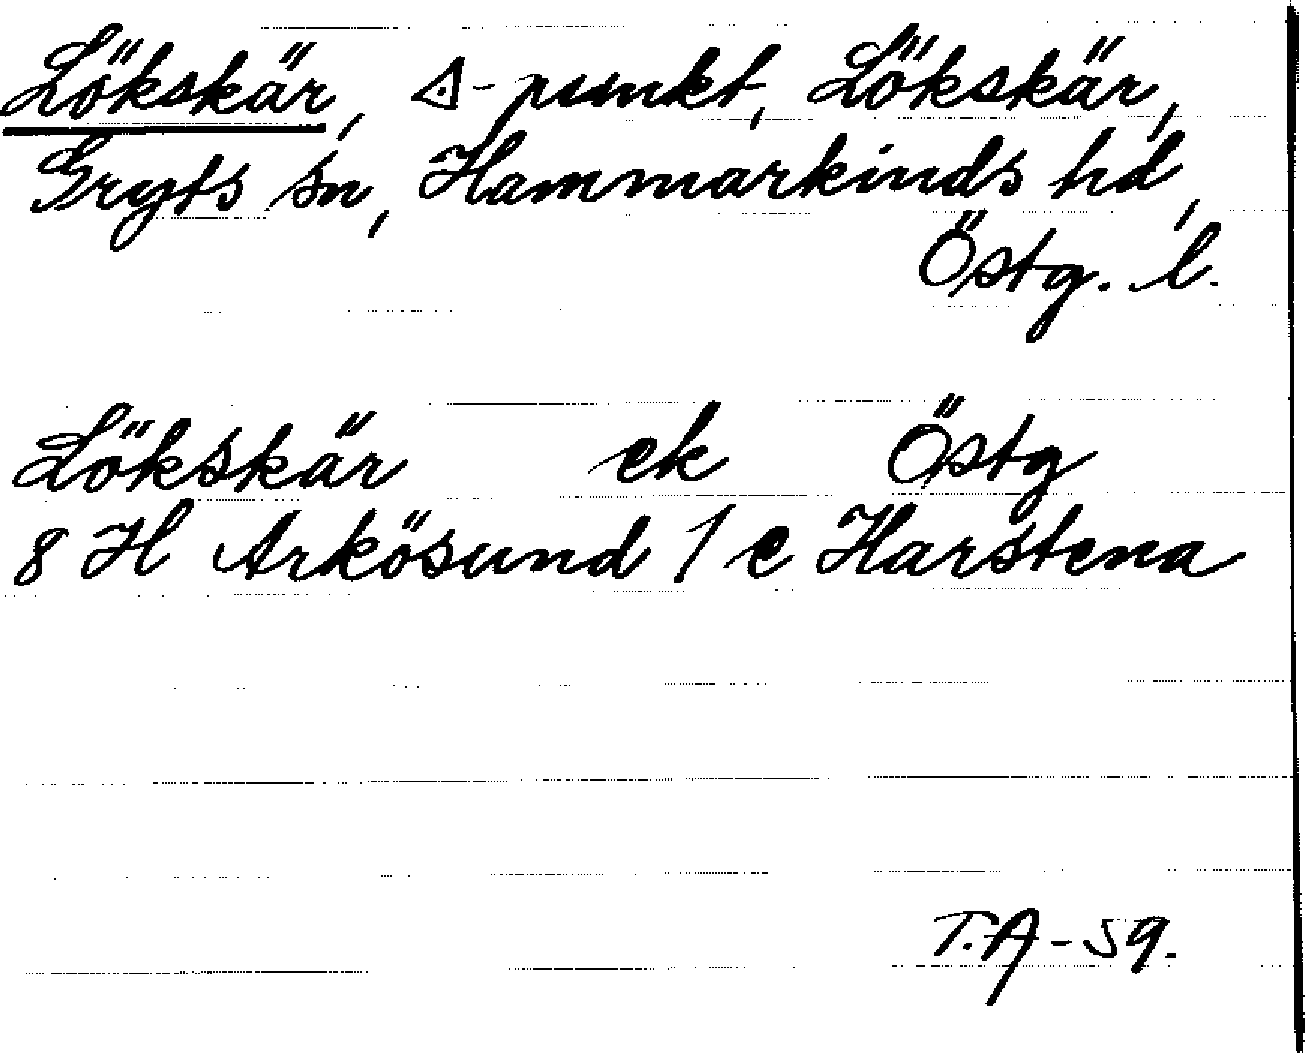 Lökskär, ⟁-punkt, Lökskär,
Gryts sn, Hammarkinds hd,
Östg. l.
Lökskär ek Östg
8 H Arkösund 1 c Harstena
T.A-59.